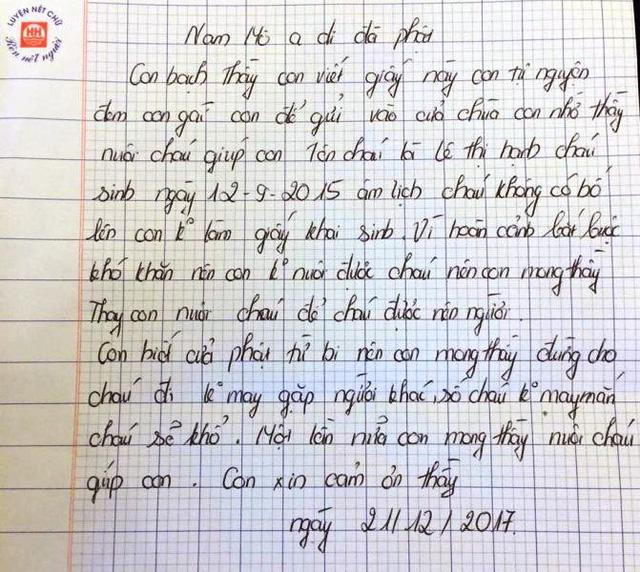 LUYỆN NÉT CHỮ
HH
Rèn nết người
Nam Mô a di đà phật
Con bạch Thầy con viết giấy này con tự nguyên
đem con gái con để gửi vào cửa chùa con nhờ thầy
nuôi cháu giúp con Tên cháu là Lê thị hạnh cháu
sinh ngày 12-9-2015 âm lịch cháu không có bố
lên con k° làm giấy khai sinh. Vì hoàn cảnh bắt buộc
khó khăn nên con k° nuôi được cháu nên con mong thầy
Thay con nuôi cháu để cháu được nên người.
Con biết cửa phật từ bi nên con mong thầy đừng cho
cháu đi k° may gặp người khác, số cháu k° may mắn
cháu sẽ khổ. Một lần nữa con mong thầy nuôi cháu
gúp con. Con xin cảm ơn thầy
ngày 21/12/2017.